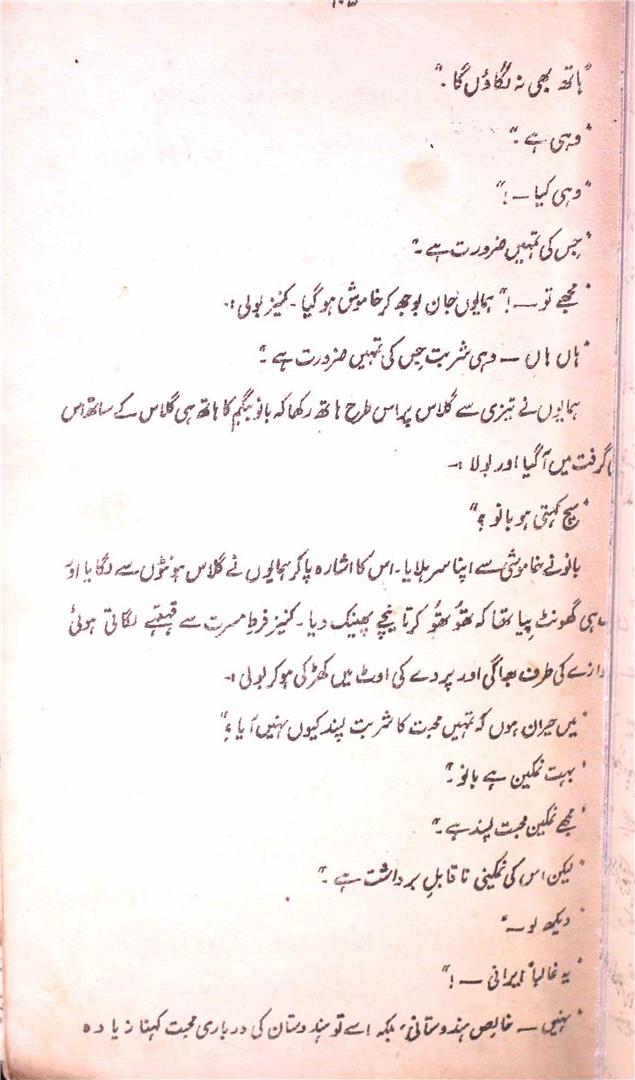 "ہاتھ بھی نہ لگاؤں گا۔"
"وہی ہے۔"
"وہی کیا — !"
"جس کی تمہیں ضرورت ہے۔"
"مجھے تو — !" ہمایوں جان بوجھ کر خاموش ہو گیا۔ کنیز بولی :۔
"ہاں ہاں — وہی شربت جس کی تمہیں ضرورت ہے۔"
ہمایوں نے تیزی سے گلاس پر اس طرح ہاتھ رکھا کہ بانو بیگم کا ہاتھ ہی گلاس کے ساتھ اس
گرفت میں آ گیا اور بولا :۔
"سچ کہتی ہو بانو ؟"
بانو نے خاموشی سے اپنا سر ہلایا۔ اس کا اشارہ پا کر ہمایوں نے گلاس ہونٹوں سے لگایا اور
ہی گھونٹ پیا تھا کہ تھُو تھُو کرتا نیچے پھینک دیا۔ کنیز فرطِ مسرت سے قہقہے لگاتی ہوئی
دازے کی طرف بھاگی اور پردے کی اوٹ میں کھڑی ہو کر بولی :۔
"میں حیران ہوں کہ تمہیں محبت کا شربت پسند کیوں نہیں آیا ؟"
"بہت نمکین ہے بانو۔"
"مجھے نمکین محبت پسند ہے۔"
"لیکن اس کی نمکینی ناقابلِ برداشت ہے۔"
"دیکھ لو —"
"یہ غالباً ایرانی — !"
"نہیں — خالص ہندوستانی، بلکہ اسے تو ہندوستان کی درباری محبت کہنا زیادہ